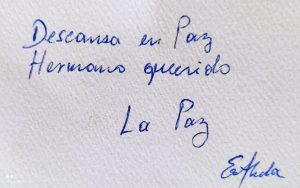 Descansa en Paz
Hermano querido
La Paz